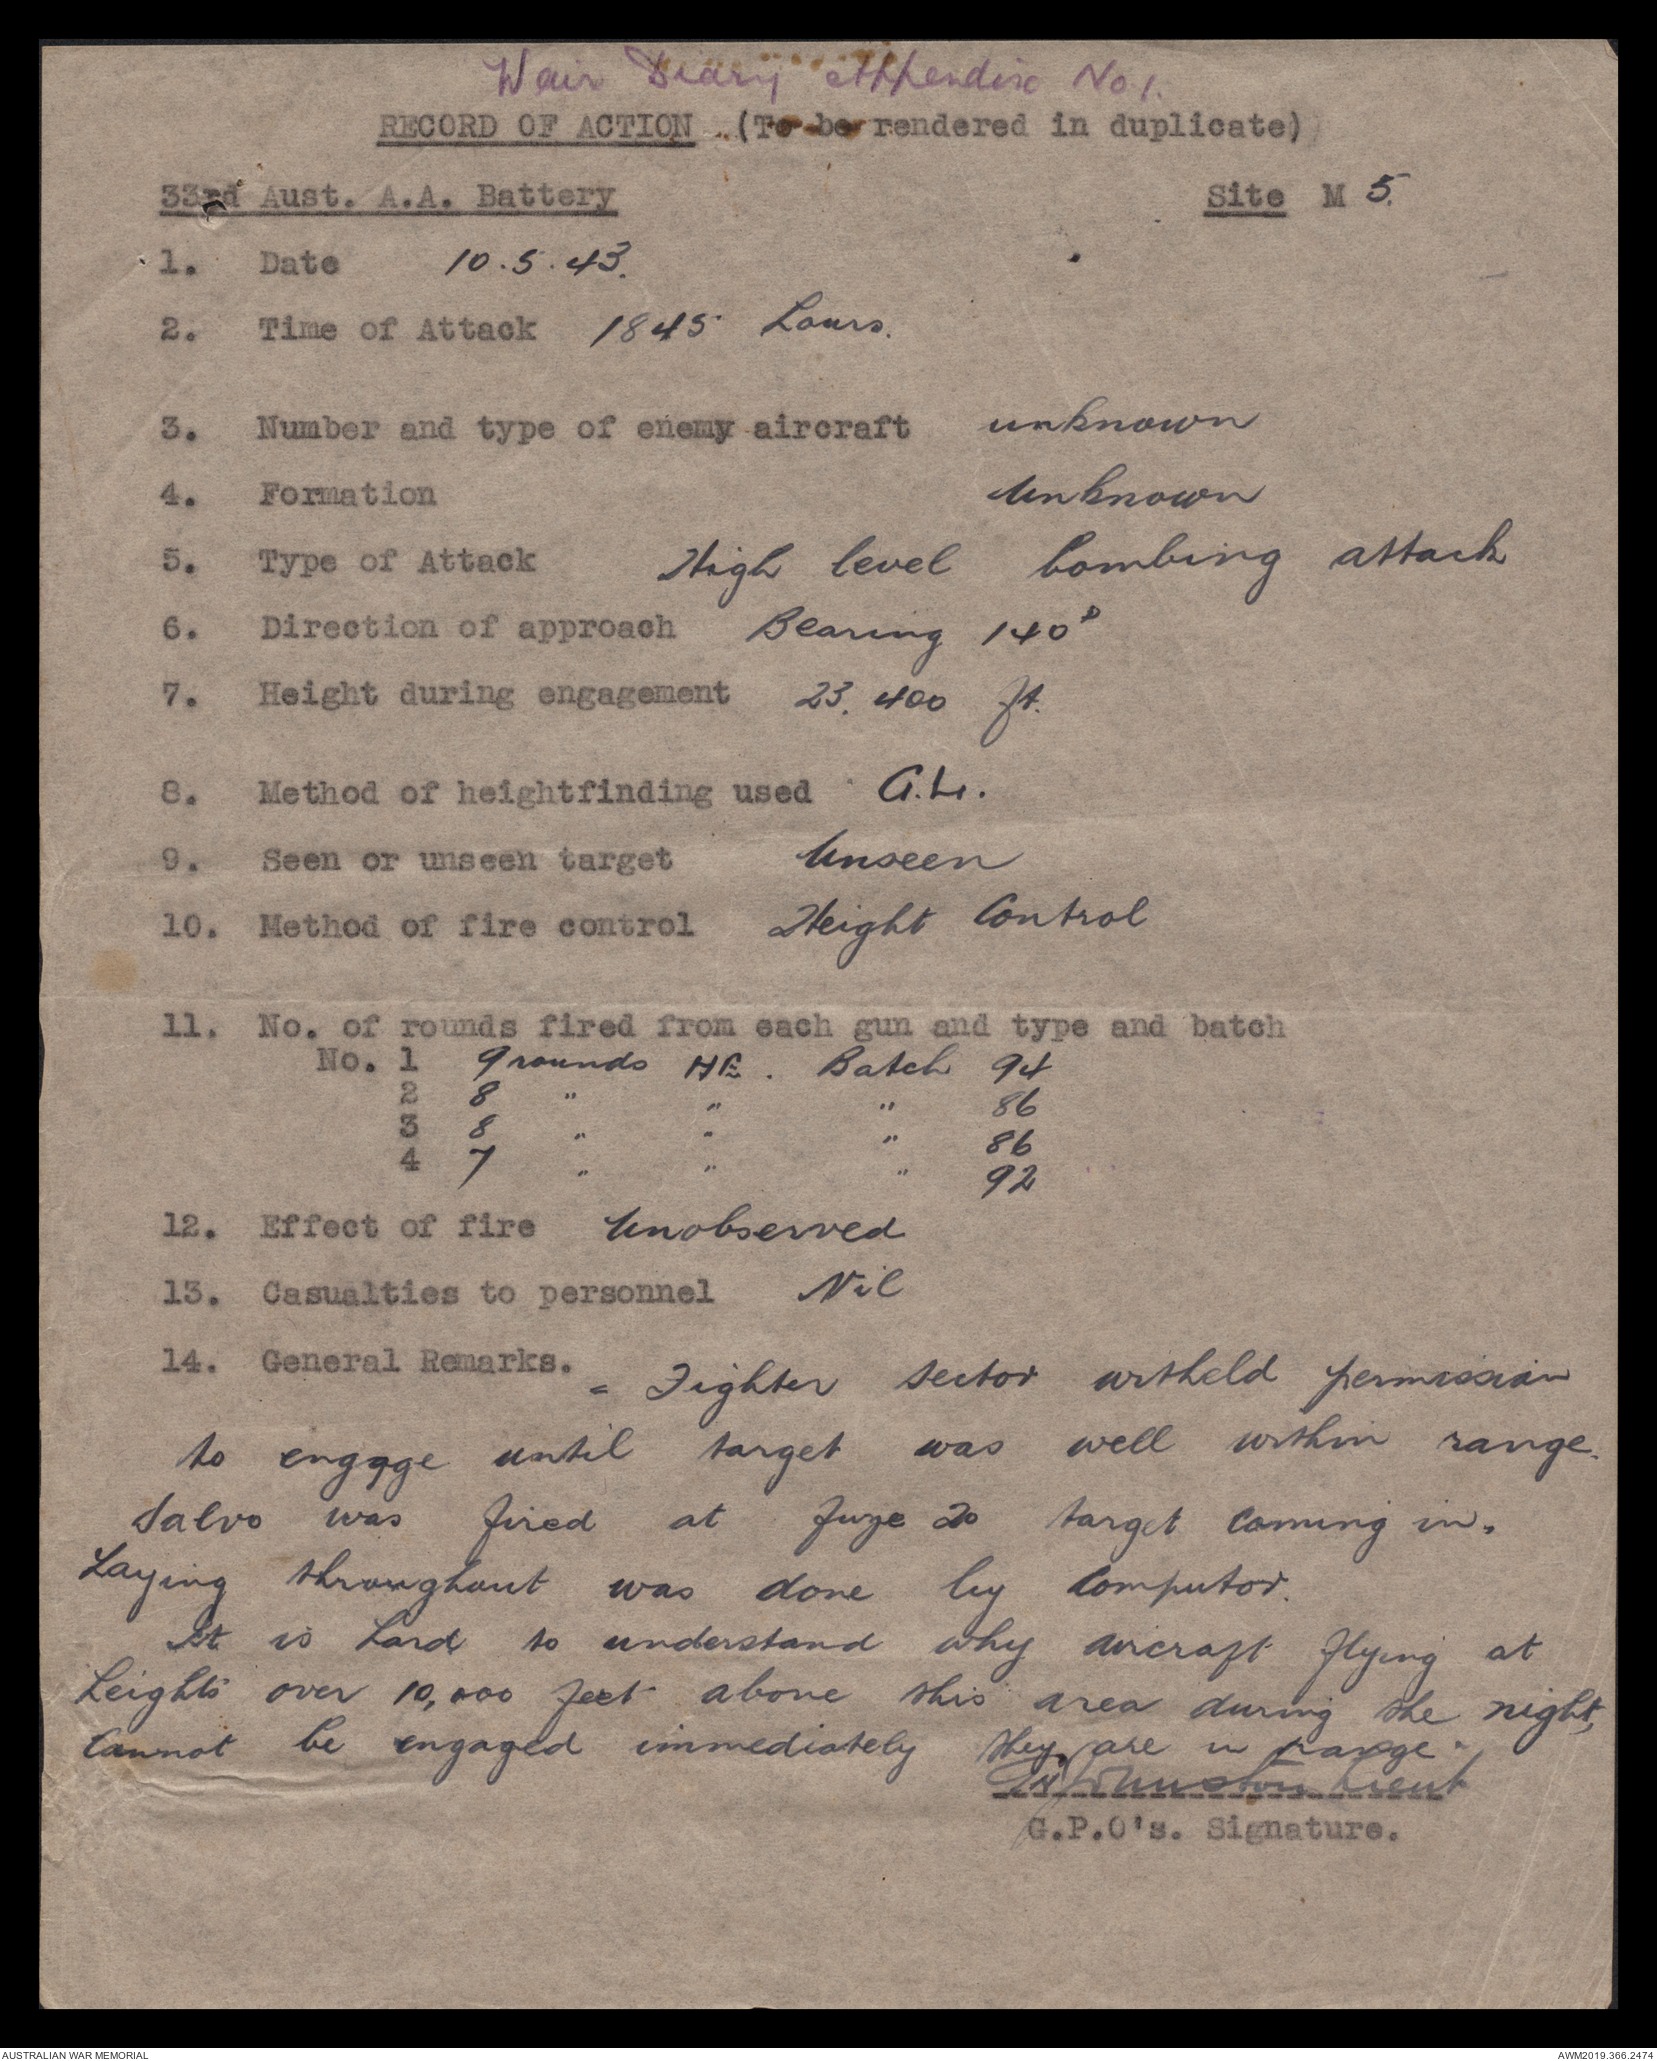 War Diary Appendix No 1.
RECORD OF ACTION (To be rendered in duplicate)
33rd Aust. A.A. Battery Site M 5.
1. Date 10.5.43.
2. Time of Attack 1845 hours.
3. Number and type of enemy aircraft unknown
4. Formation Unknown
5. Type of Attack High level bombing attack
6. Direction of approach Bearing 140°
7. Height during engagement 23,400 ft.
8. Method of heightfinding used G.L.
9. Seen or unseen target Unseen
10. Method of fire control Height Control
11. No. of rounds fired from each gun and type and batch
No. 1 9 rounds HE. Batch 94
2 8 " " " 86
3 8 " " " 86
4 7 " " " 92
12. Effect of fire Unobserved
13. Casualties to personnel Nil
14. General Remarks. - Fighter sector witheld permission
to engage until target was well within range.
Salvo was fired at fuze 20 target coming in.
Laying throughout was done by Computor.
It is hard to understand why aircraft flying at
heights over 10,000 feet above this area during the night,
cannot be engaged immediately they are in range.
Johnston Lieut
G.P.O's. Signature.
AUSTRALIAN WAR MEMORIAL AWM2019.366.2474